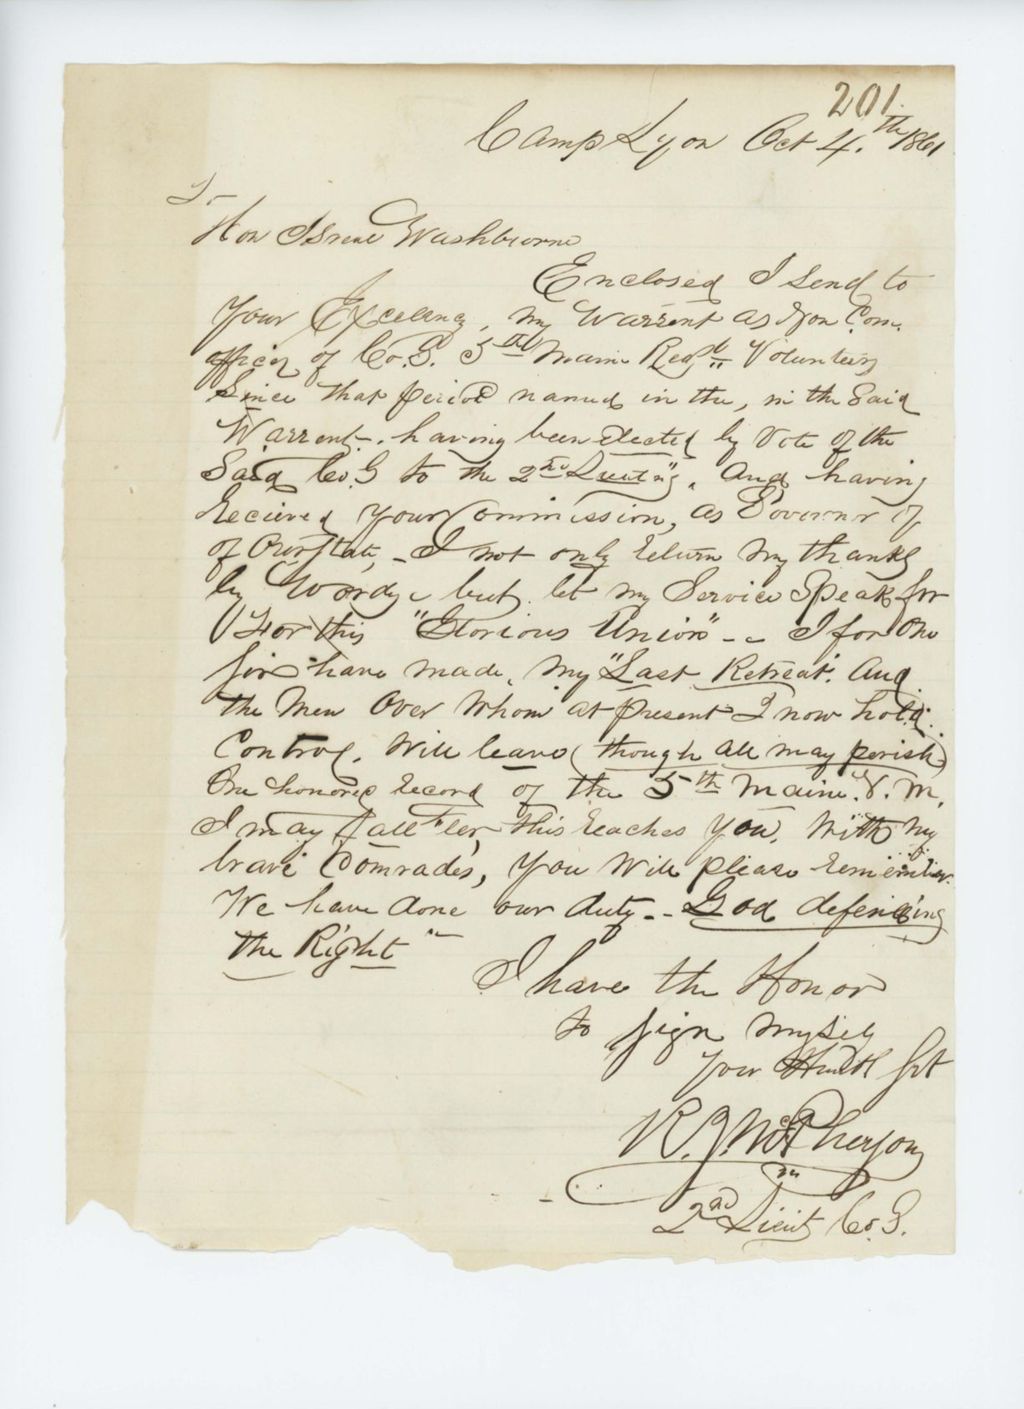 201.
Camp Lyon Oct 4.th 1861
To
Hon Israel Washburne
Enclosed I send to
Your Excelency, my Warrent as Non Com.
officer of Co. G. 5th Maine Regt Volunteers
Since that period named in the, in the Said
Warrent-. having been Elected by Vote of the
Said Co. G to the 2nd Lieut'cy, and having
Recieved Your Commission, as Governor of
of Our State, - I not only Return my thanks
by Words - but let my Service Speak for
For this "Glorious Union" -- I for One
Sir have made, my "Last Retreat. And
the Men Over Whom at present I now hold
Control, Will leave (though all may perish)
One honored Record of the 5th Maine. V. M.
I may fall 'er, this Reaches You, With my
brave Comrades, You Will please Remember
We have done our duty -- God defending
the Right"
I have the Honor
to Sign myself
Your Humbl Svt
R. J. McPherson
2nd Lieut Co. G.